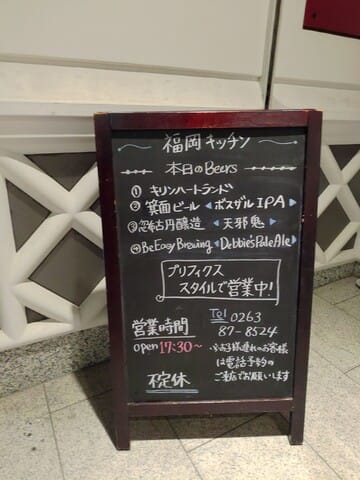 福岡キッチン
本日のBeers
① キリンハートランド
② 箕面ビール ◀ボスザルIPA▶
③ 忽布古丹醸造 ◀天邪鬼▶
④ Be Easy Brewing ◀Debbie's Pale Ale▶
プリフィクス
スタイルで営業中!
営業時間
open 17:30〜
不定休
Tel 0263
87-8524
※お子様連れのお客様
は電話予約の
ご来店でお願いします